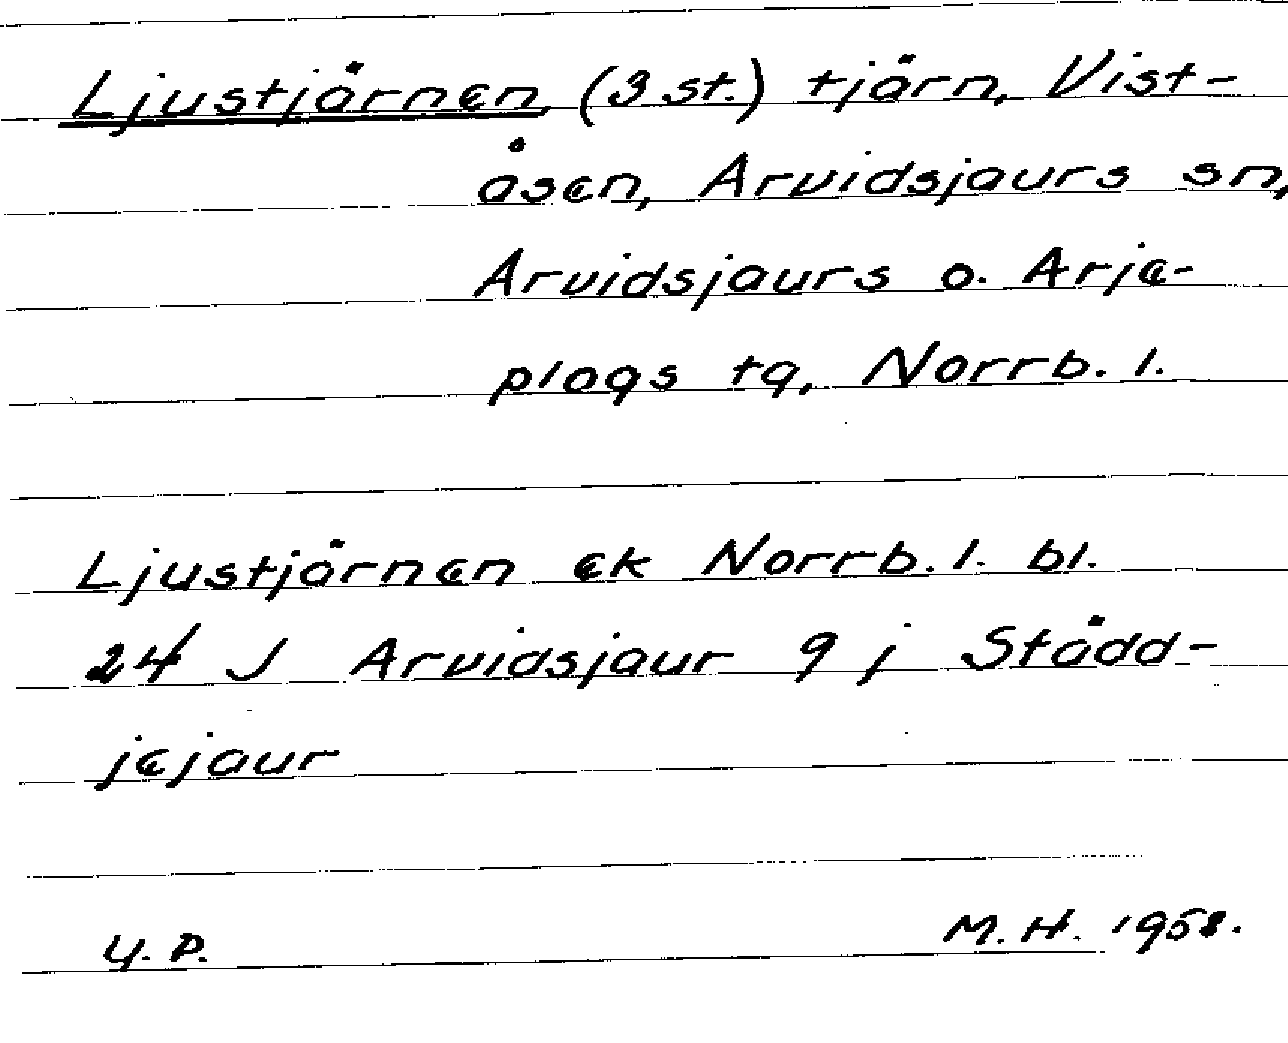 Ljustjärnen, (3 st.) tjärn, Vist-
åsen, Arvidsjaurs sn,
Arvidsjaurs o. Arje-
plogs tg, Norrb. l.
Ljustjärnen ek Norrb. l. bl.
24 J Arvidsjaur 9 j Städd-
jejaur
Y. P.
M. H. 1958.